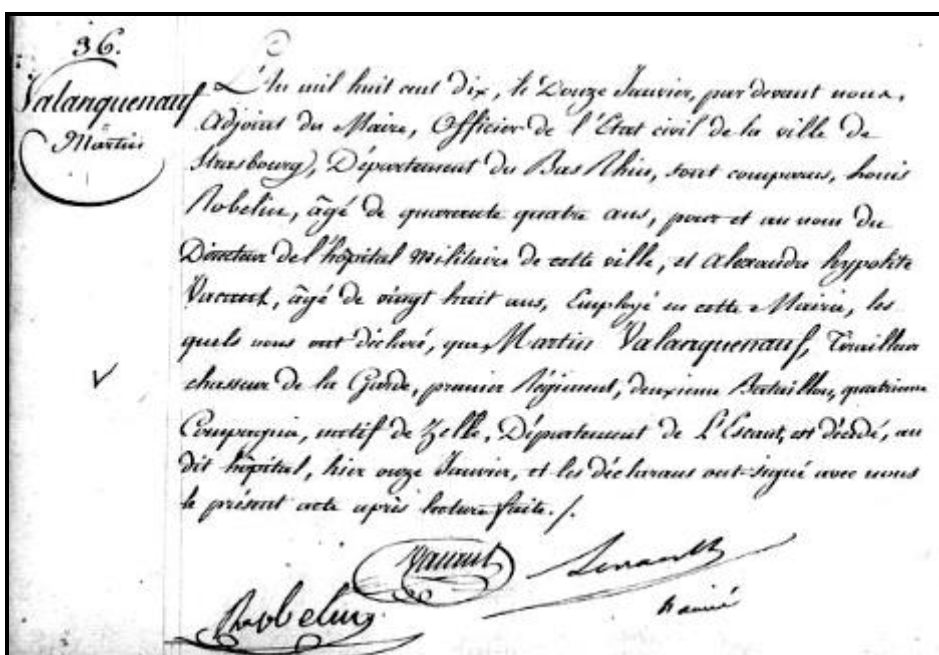 36.
Valanquenauf
Martin
L'An mil huit cent dix, le Douze Janvier, par devant nous,
Adjoint du Maire, Officier de l'Etat civil de la ville de
Strasbourg, Département du Bas Rhin, sont comparus, Louis
Robelin, âgé de quarante quatre ans, pour et au nom du
Directeur de l'hôpital militaire de cette ville, et Alexandre hypolite
âgé de vingt huit ans, Employé en cette Mairie, les
quels nous ont déclaré, que, Martin Valanquenauf, Tirailleur
chasseur de la Garde, premier Régiment, deuxieme Bataillon, quatrieme
Compagnie, natif de Zelle, Département de L'Escaut, est décédé, au
dit hôpital, hier onze Janvier, et les déclarans ont signé avec nous
le présent acte après lecture faite. /.
Robelin